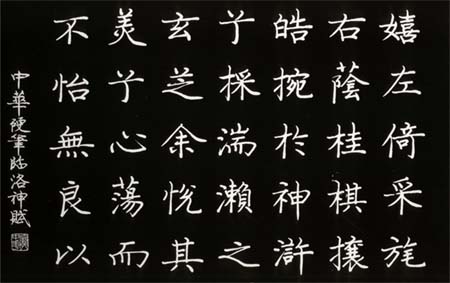 嬉左倚采旄
右蔭桂棋攘
皓捥於神滸
兮採湍瀨之
玄芝余悅其
羙兮心蕩而
不怡無良以
中華硬筆臨洛神賦